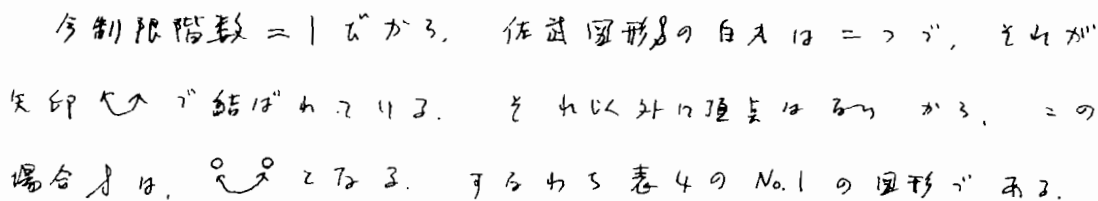 今制限階数=1だから、佐武図形𝒮の白丸は二つで、それが
矢印⤹⤴で結ばれている。それ以外に頂点はないから、この
場合𝒮は、○ ○となる。すなわち表4のNo.1の図形である。